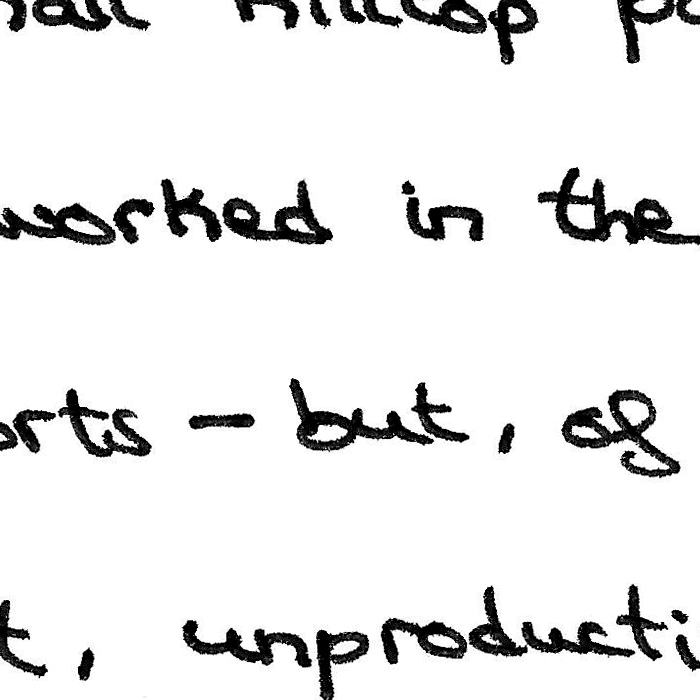 hilltop
worked in the
orts – but, of
t, unproducti